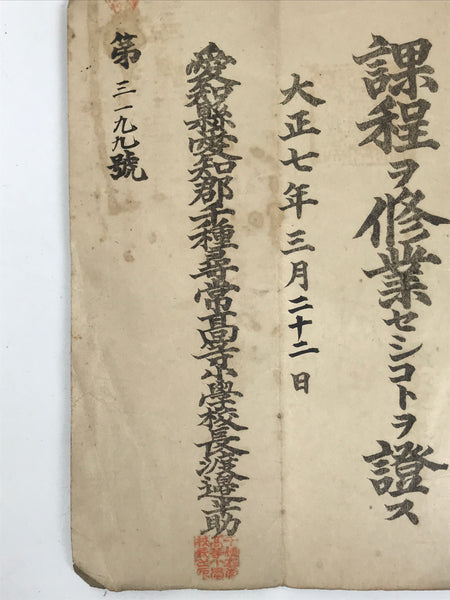 課程ヲ修業セシコトヲ證ス
大正七年三月二十二日
愛知縣愛知郡千種尋常高等小學校長渡邉幸助
第三一九九號